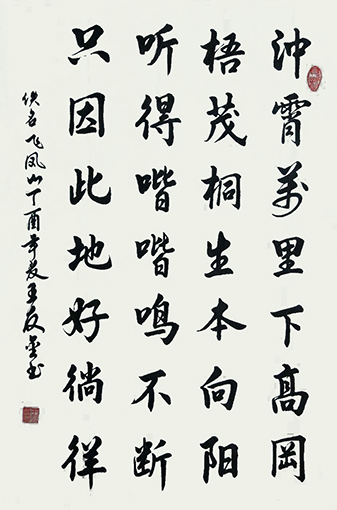 沖霄萬里下高岡
梧茂桐生本向阳
听得喈喈鸣不断
只因此地好徜徉
佚名飞凤山丁酉年夏王友书